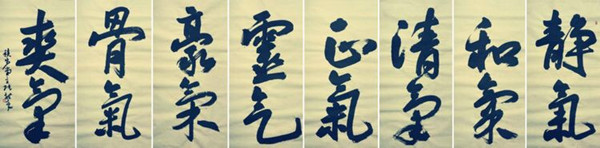 静氣
和氣
清氣
正氣
靈气
豪氣
骨氣
爽氣